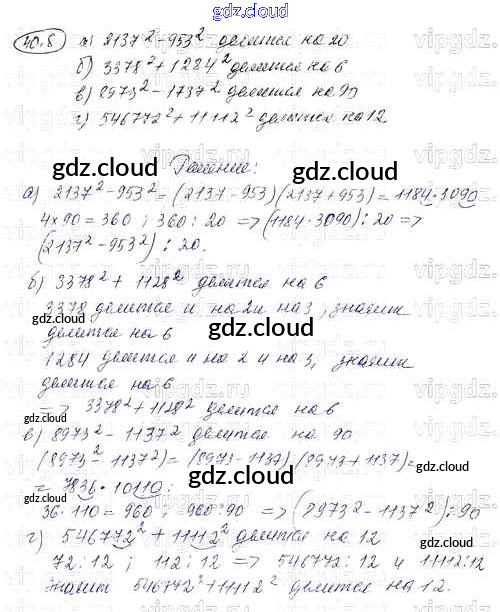 gdz.cloud
40.8 а) 2137² - 953² делится на 20
б) 3378² + 1284² делится на 6
в) 8973² - 1137² делится на 90
г) 546772² + 11112² делится на 12
gdz.cloud
Решение:
gdz.cloud
а) 2137² - 953² = (2137 - 953)(2137 + 953) = 1184 · 3090
4 x 90 = 360 ; 360 : 20 => (1184 · 3090) ⋮ 20 =>
(2137² - 953²) ⋮ 20.
б) 3378² + 1128² делится на 6
3378 делится и на 2 и на 3, значит
gdz.cloud
делится на 6
gdz.cloud
1284 делится и на 2 и на 3, значит
делится на 6
gdz.cloud
=> 3378² + 1128² делится на 6
в) 8973² - 1137² делится на 90.
(8973² - 1137²) = (8973 - 1137) · (8973 + 1137) =
gdz.cloud
= 7836 · 10110 ;
36 · 110 = 960 ; 960 : 90 => (7973² - 1137²) : 90
г) 546772² + 11112² делится на 12
gdz.cloud
72 : 12 ; 112 : 12 => 546772 : 12 и 11112 : 12
значит 546772² + 11112² делится на 12.